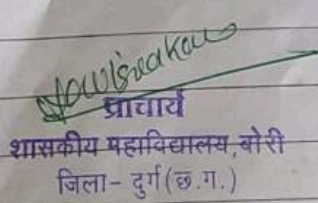 प्राचार्य
शासकीय महाविद्यालय,बोरी
जिला- दुर्ग(छ.ग.)